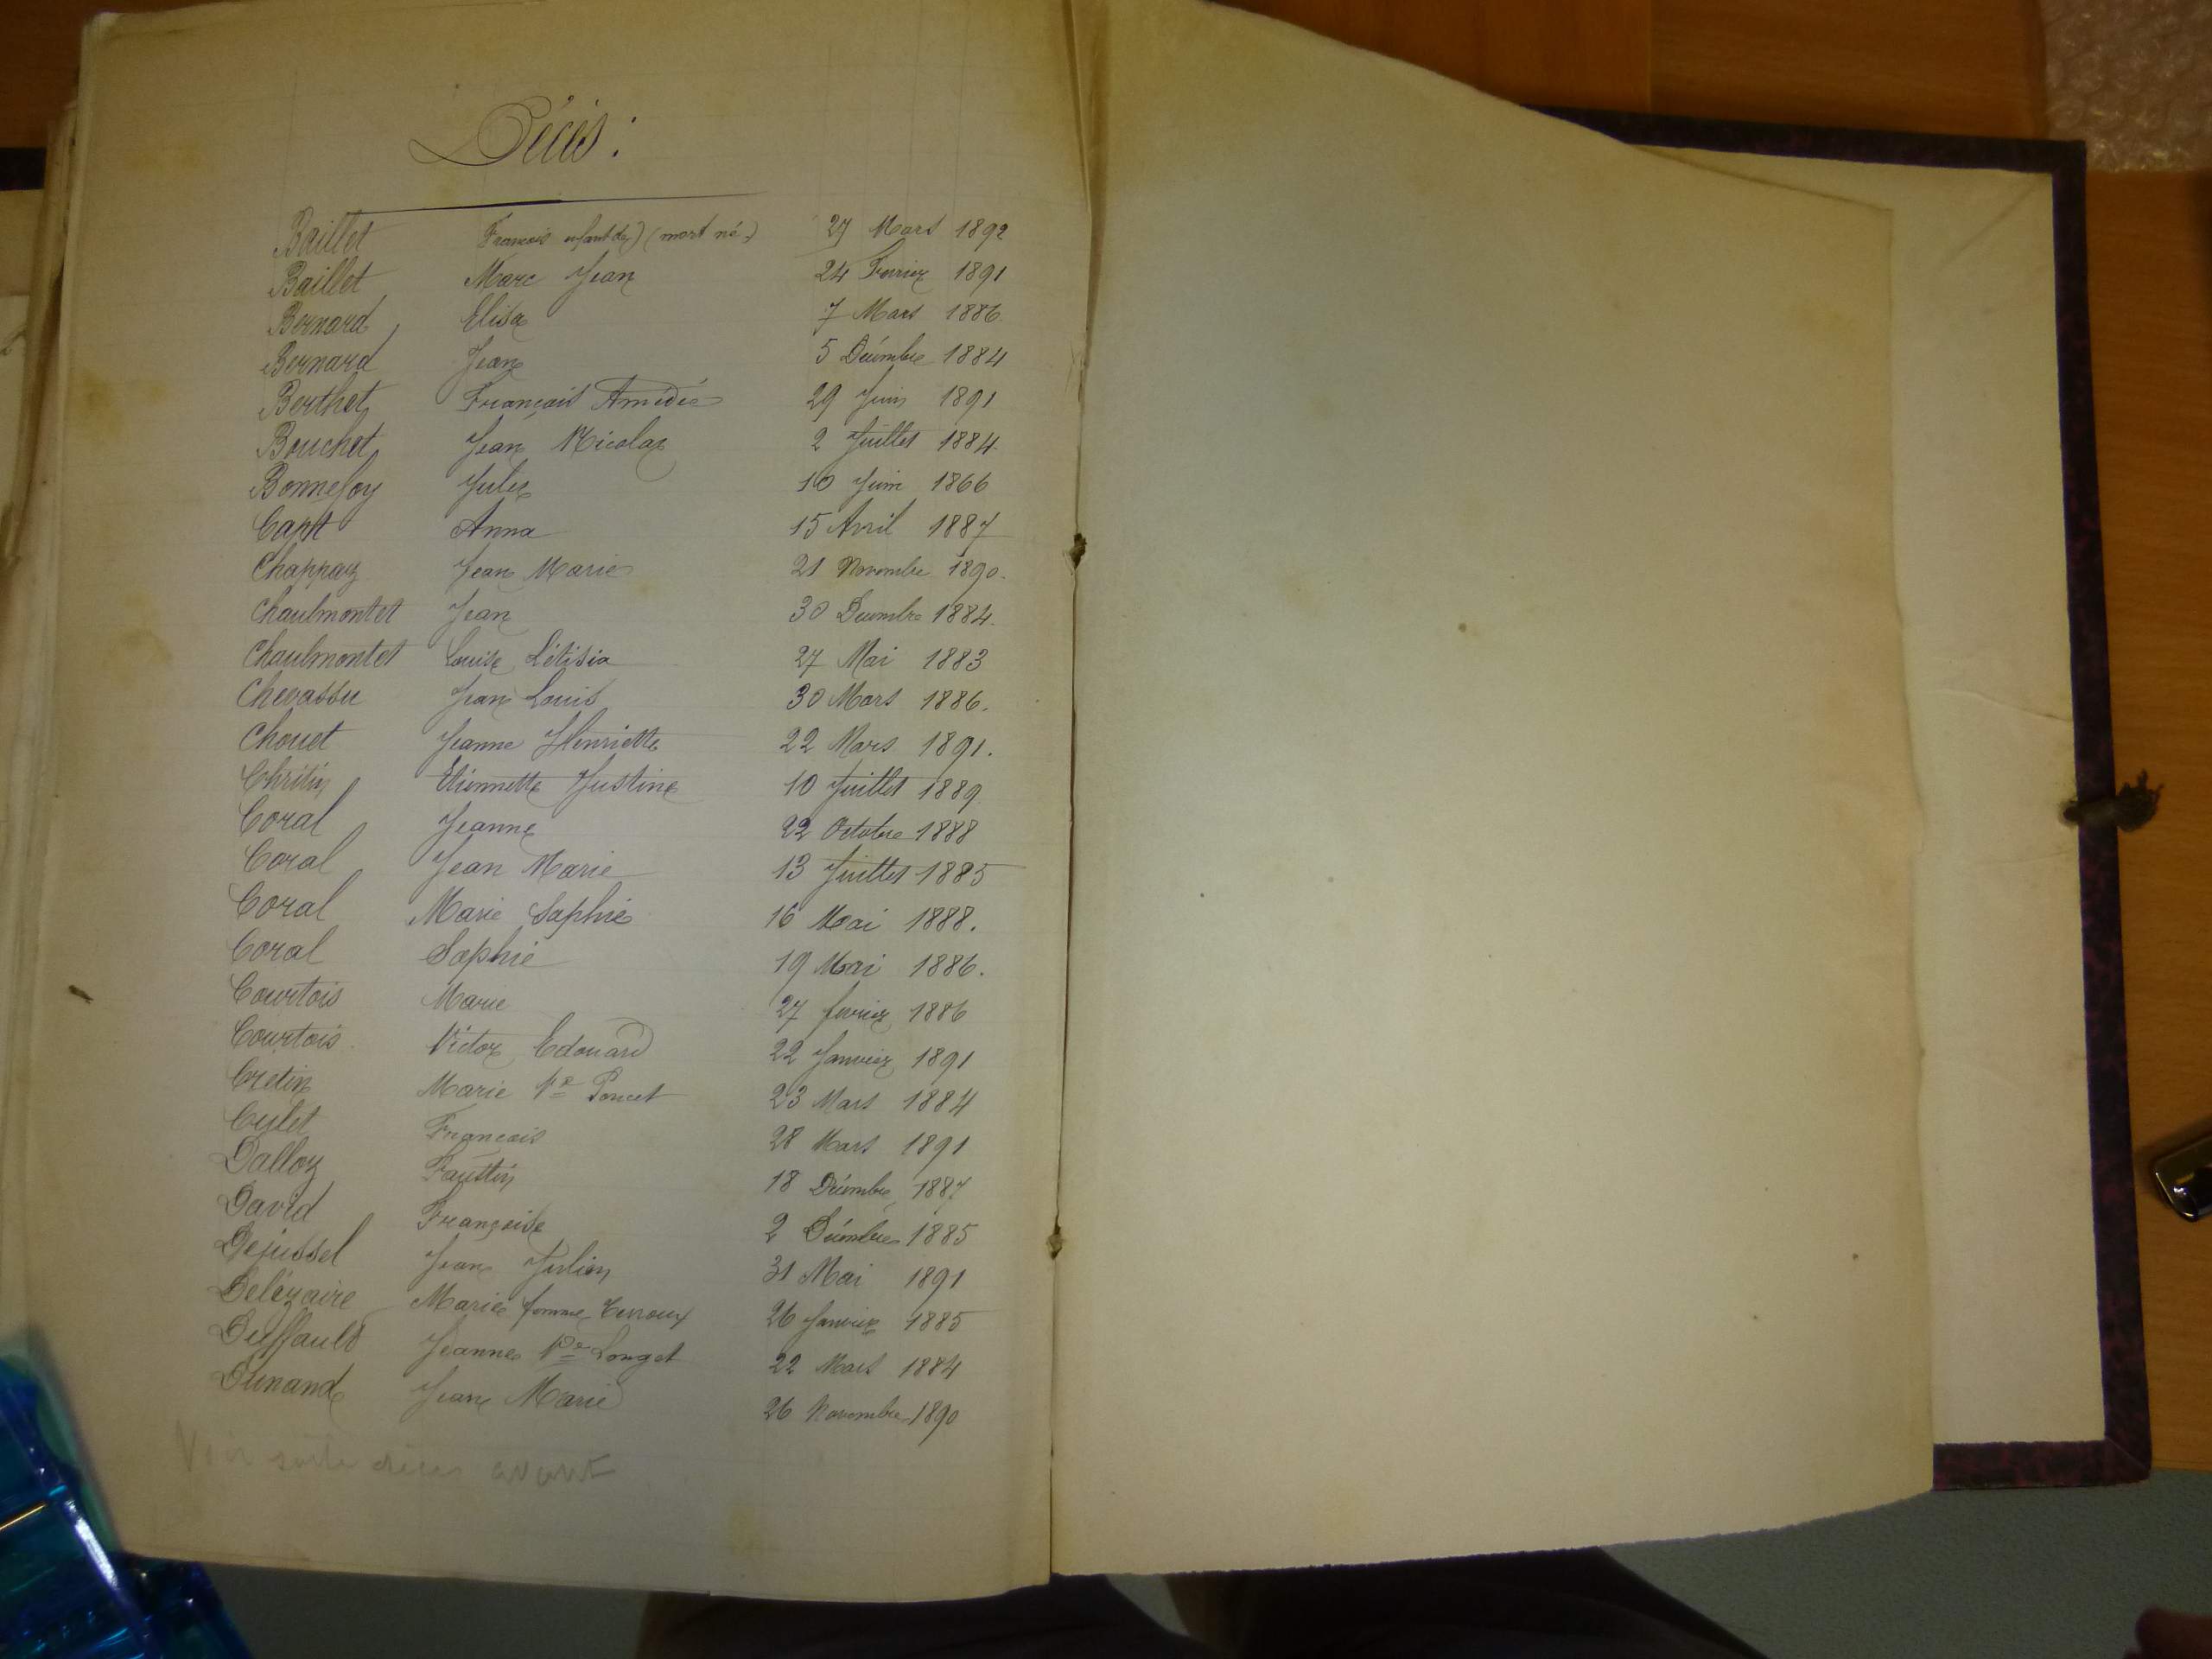 Décès :
Baillet François enfant de) (mort né.) 27 Mars 1892
Baillet Marc Jean 24 Fevrier 1891
Bernard Elisa 7 Mars 1886.
Bernard Jean 5 Décembre 1884
Berthet François Amédée 29 Juin 1891
Bouchet Jean Nicolas 2 Juillet 1884.
Bonnefoy Jules 10 Juin 1866
Capt Anna 15 Avril 1887
Chappaz Jean Marie 21 Novembre 1890.
Chaulmontet Jean 30 Décembre 1884.
Chaulmontet Louise Létisia 27 Mai 1883
Chevassu Jean Louis 30 Mars 1886.
Chouet Jeanne Henriette 22 Mars 1891.
Chritin Etiennette Justine 10 Juillet 1889
Coral Jeanne 22 Octobre 1888
Coral Jean Marie 13 Juillet 1885
Coral Marie Sophie 16 Mai 1888.
Coral Sophie 19 Mai 1886.
Courtois Marie 27 fevrier 1886
Courtois Victor Edouard 22 Janvier 1891
Cretin Marie Ve Poncet 23 Mars 1884
François 28 Mars 1891
Dalloz Faustin 18 Décembre 1887
David Françoise 2 Décembre 1885
Dejussel Jean Julien 31 Mai 1891
Delézaire Marie femme 26 Janvier 1885
Duffauld Jeanne Ve Longet 22 Mars 1884
Dunand Jean Marie 26 Novembre 1890
Voir suite décès avant